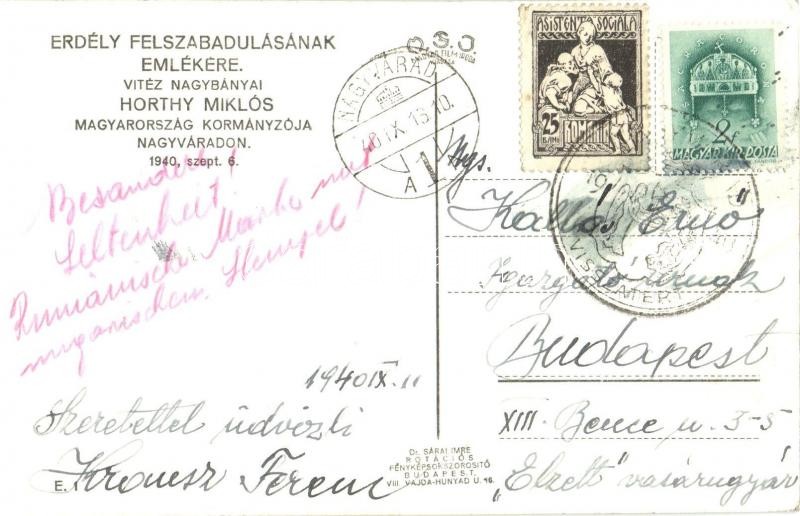 ERDÉLY FELSZABADULÁSÁNAK
EMLÉKÉRE.
VITÉZ NAGYBÁNYAI
HORTHY MIKLÓS
MAGYARORSZÁG KORMÁNYZÓJA
NAGYVÁRADON.
1940, szept. 6.
O.S.J.
NAGYVÁRAD
40 IX 13 10
A 1
ASISTENȚA SOCIALA
25
BANI
ROMANIA
2f
MAGYAR KIR. POSTA
Besondere
Seltenheit!
Rumänische Marke mit
ungarischem Stempel!
Kallós Ernő
Igazgató urnak
Budapest
XIII. Bence u. 3-5
"Elzett" vasárugyár
1940 IX. 11
Szeretettel üdvözli
Ferenc
E. 1.
Dr. SÁRAI IMRE
ROTÁCIÓS
FÉNYKÉPSOKSZOROSITÓ
BUDAPEST.
VIII. VAJDA-HUNYAD U. 16.